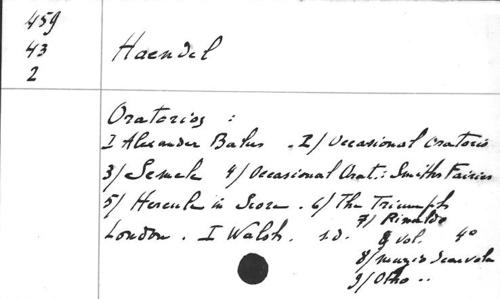 459
43
2
Haendel
Oratorios :
I Alexander Balus . 2/ Occasional Oratorio
3/ Semele 4/ Occasional Orat.: Smiths Fairies
5/ Hercule in Scoze . 6/ The Triumph
7/ Rinaldo
London . I Walsh . s.d. 9 vol. 4º
8/ Muzio Scaevola
9/ Otho ..